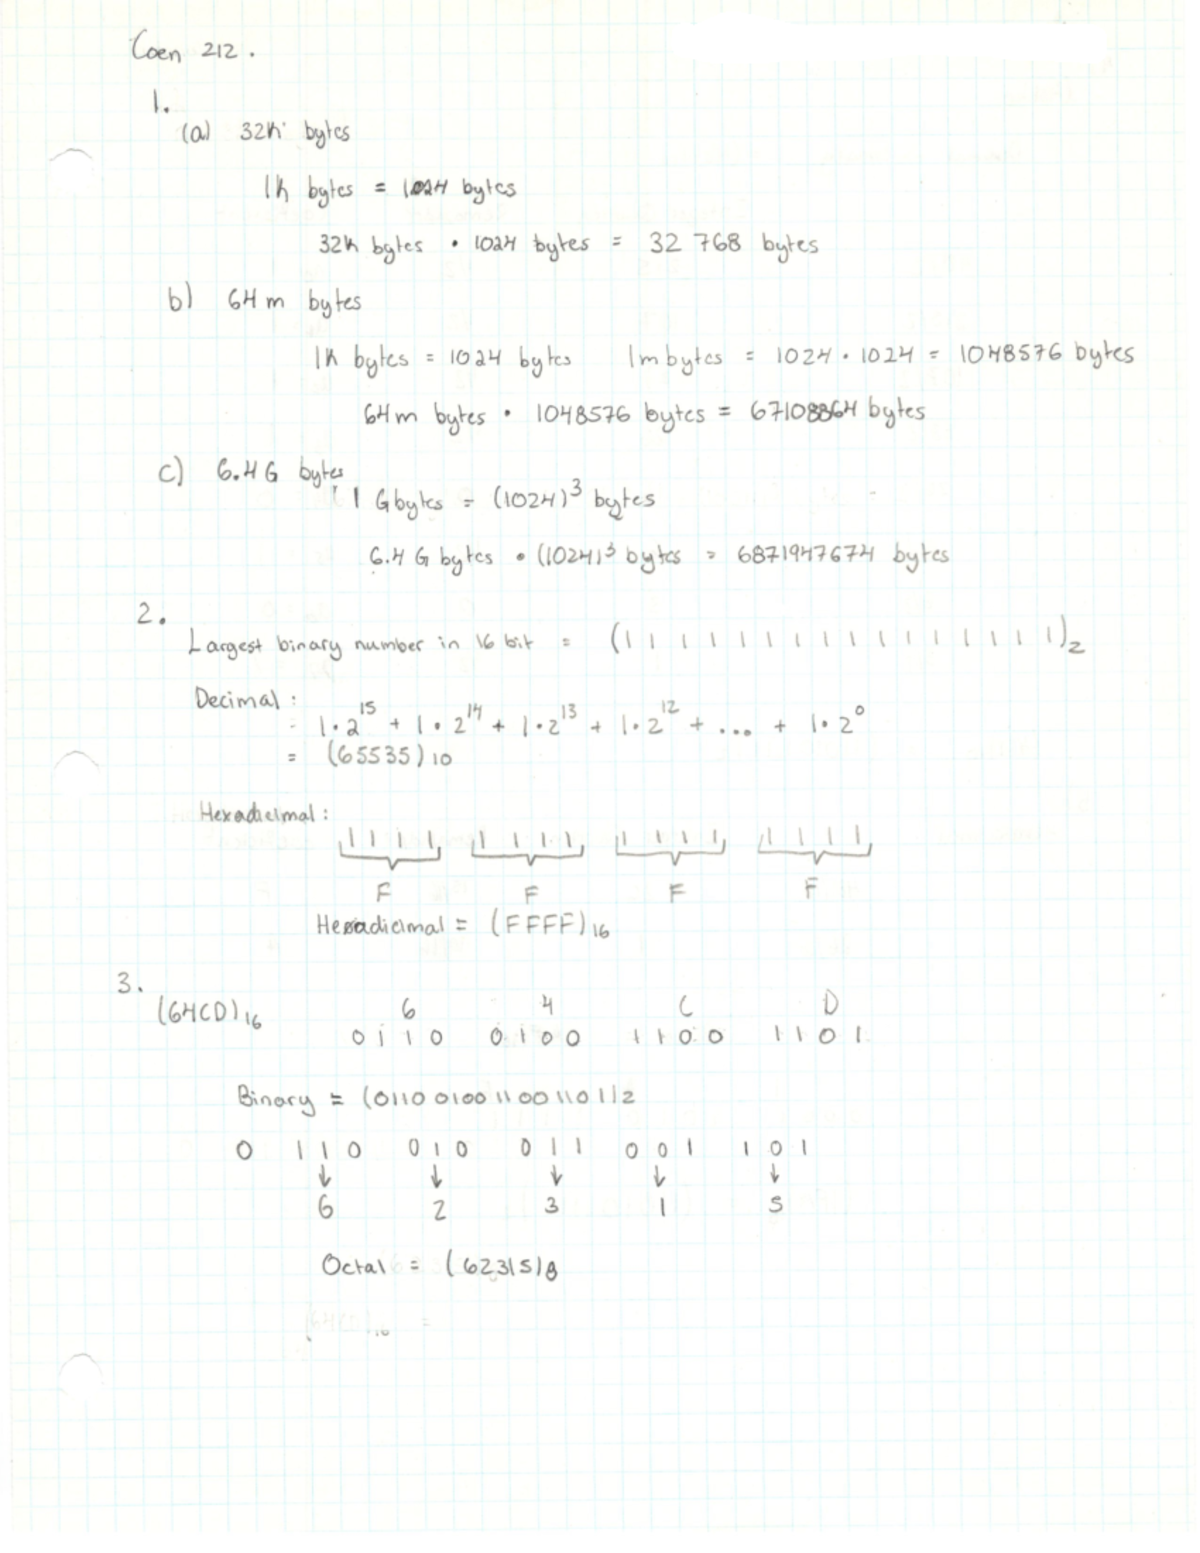 Coen 212.
1.
(a) 32K bytes
1K bytes = 1024 bytes
32K bytes • 1024 bytes = 32 768 bytes
b) 64 m bytes
1K bytes = 1024 bytes 1m bytes = 1024 • 1024 = 1048576 bytes
64m bytes • 1048576 bytes = 67108864 bytes
c) 6.4 G bytes
1 Gbytes = (1024)³ bytes
6.4 G bytes • (1024)³ bytes = 6871947674 bytes
2.
Largest binary number in 16 bit = (1 1 1 1 1 1 1 1 1 1 1 1 1 1 1 1)₂
Decimal:
= 1•2¹⁵ + 1•2¹⁴ + 1•2¹³ + 1•2¹² + ... + 1•2⁰
= (65535)10
Hexadicimal:
1 1 1 1 1 1 1 1 1 1 1 1 1 1 1 1
F F F F
Hexadicimal = (FFFF)16
3.
(64CD)16 6 4 C D
0 1 1 0 0 1 0 0 1 1 0 0 1 1 0 1
Binary = (0110 0100 1100 1101)2
0 1 1 0 0 1 0 0 1 1 0 0 1 1 0 1
↓ ↓ ↓ ↓ ↓
6 2 3 1 5
Octal = (62315)8